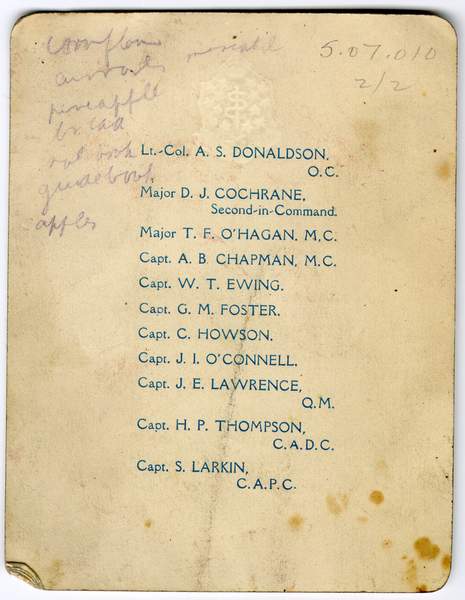 cornflour
currants
pineapple
bread
guidebook
apples
5.07.010
2/2
Lt.-Col. A. S. DONALDSON,
O.C.
Major D. J. COCHRANE,
Second-in-Command.
Major T. F. O'HAGAN, M.C.
Capt. A. B. CHAPMAN, M.C.
Capt. W. T. EWING.
Capt. G. M. FOSTER.
Capt. C. HOWSON.
Capt. J. I. O'CONNELL.
Capt. J. E. LAWRENCE,
Q.M.
Capt. H. P. THOMPSON,
C.A.D.C.
Capt. S. LARKIN,
C.A.P.C.